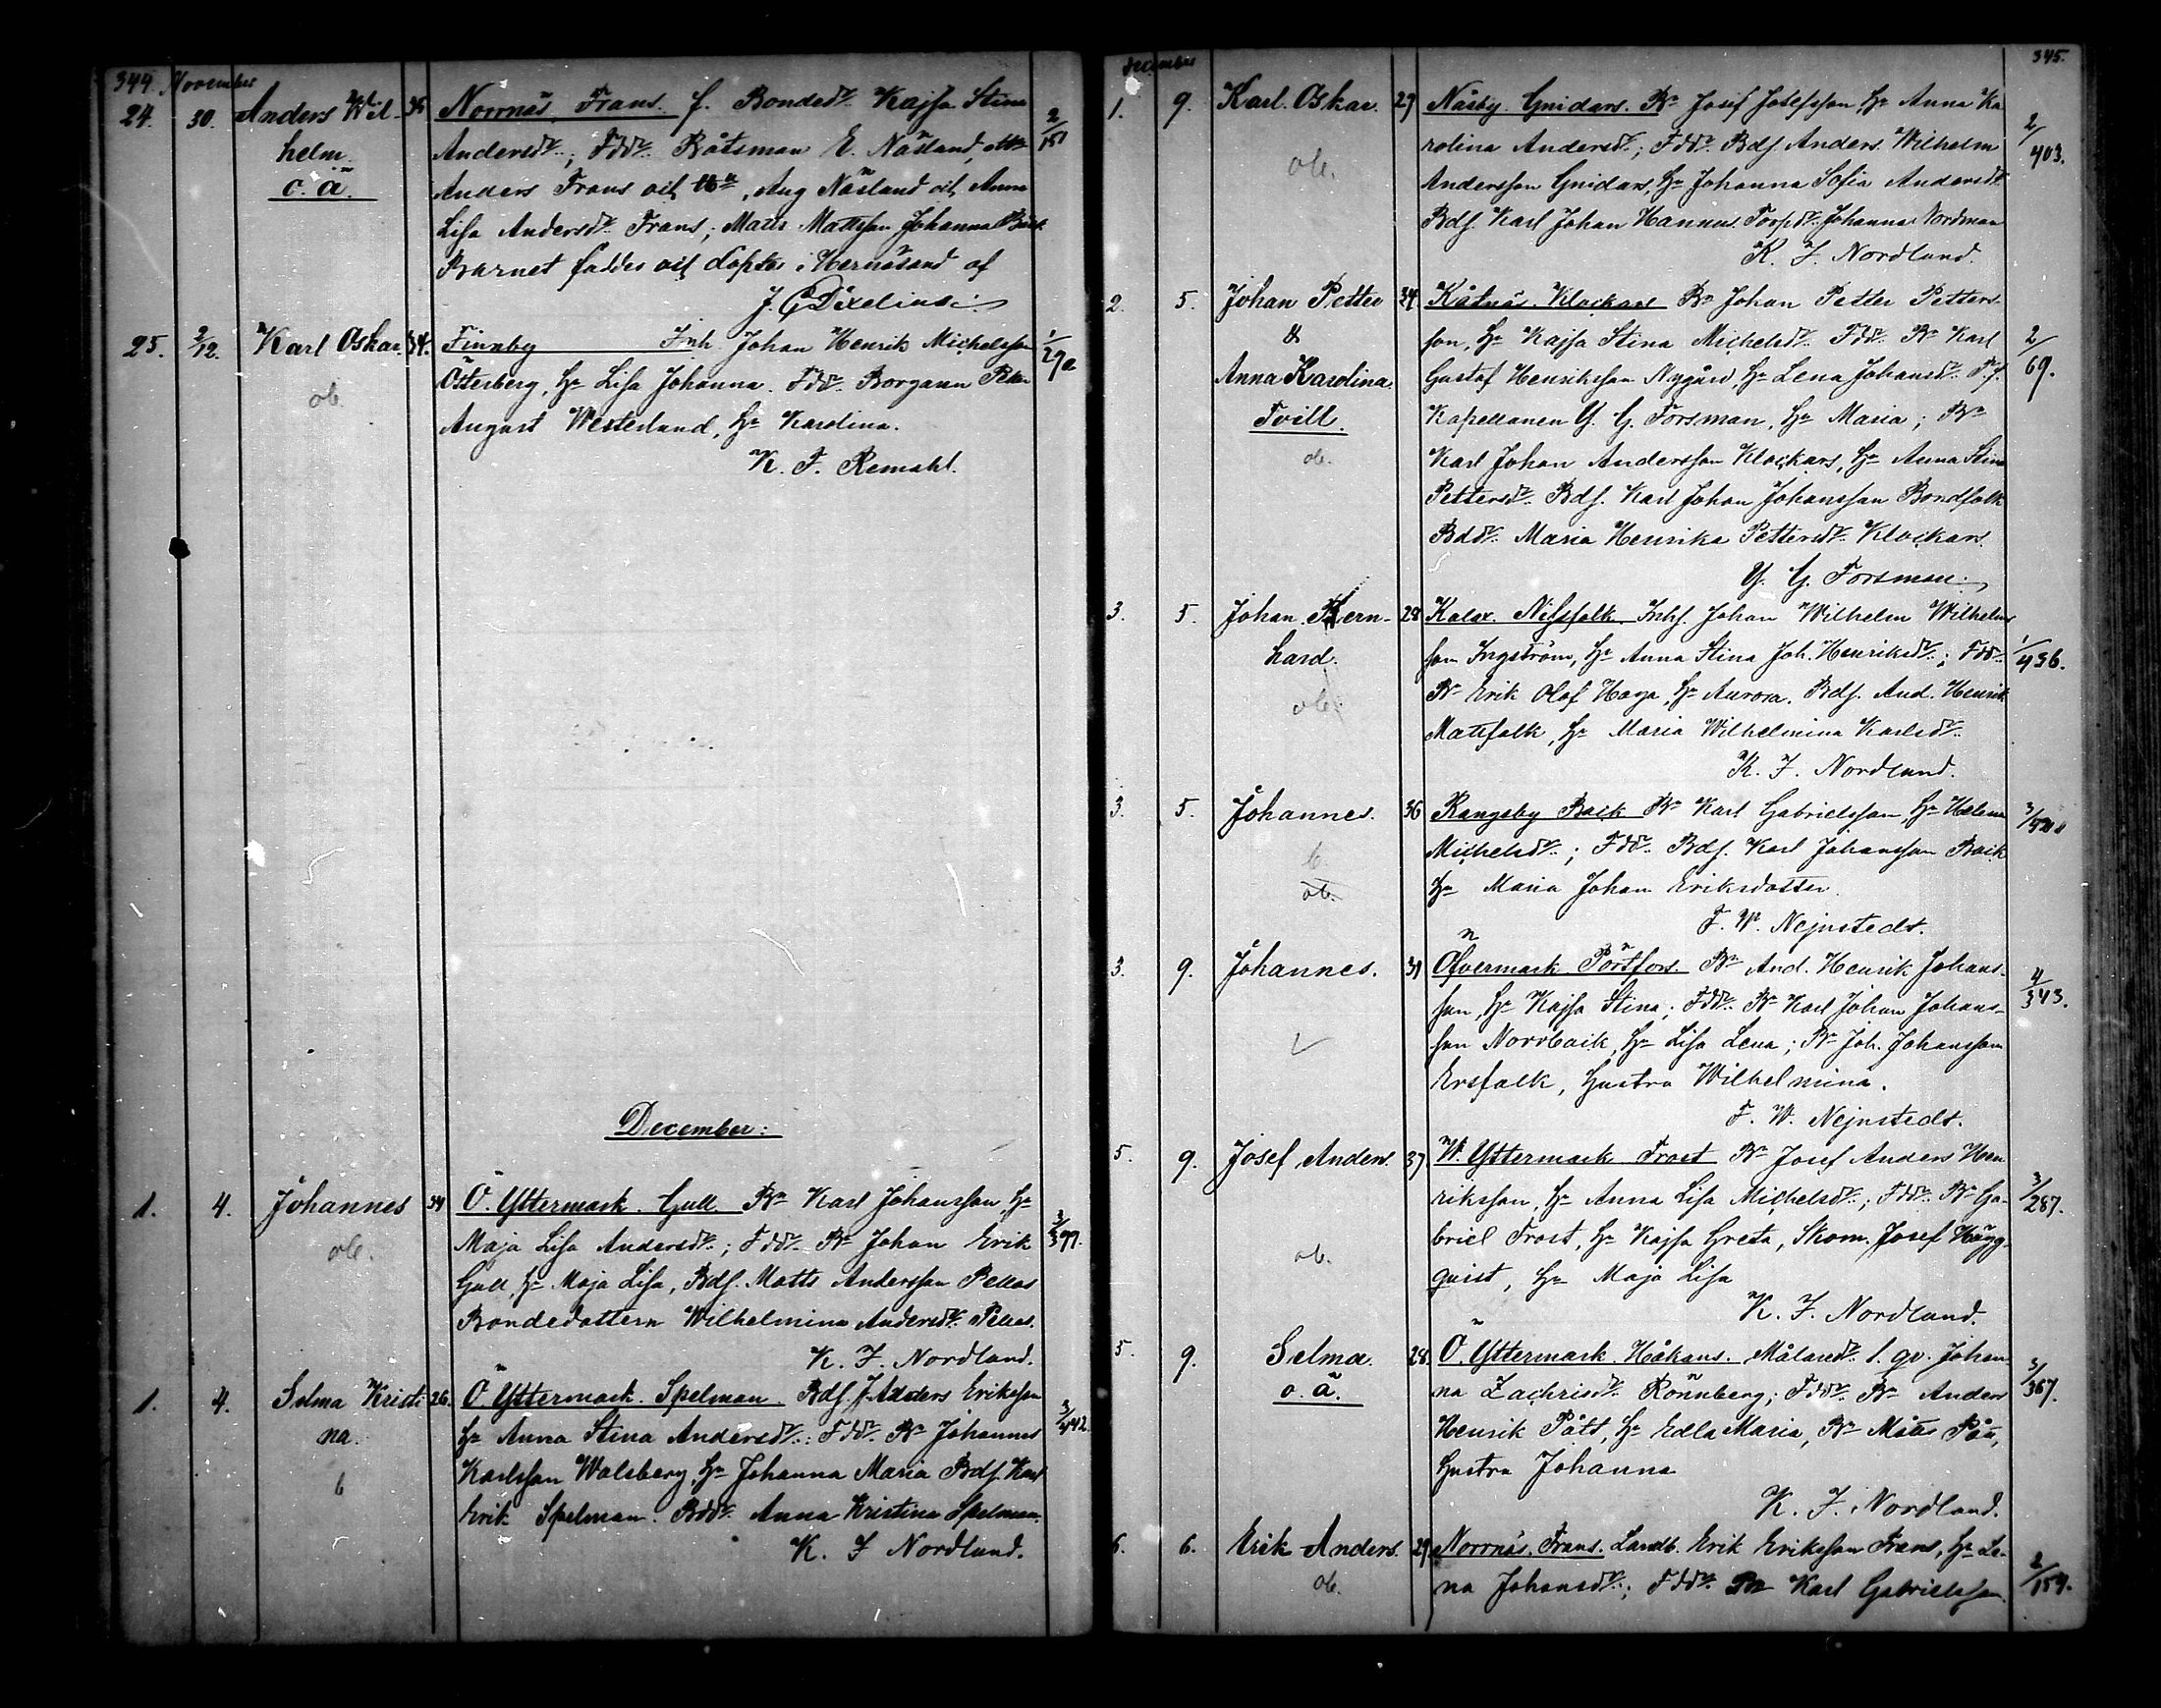 344. November
24. 30. Anders Wil- 35 Norrnäs. Frans. f. Bondedr. Kajsa Stina 2/151
helm. Andersdr.; Fddr. Båtsman E. Näsland,
o. ä. Anders Frans och Aug Näsland och Anna
Lisa Andersdr. Frans; Matts Mattsson Johanna Bäck
Barnet föddes och döptes i Hernösand af
J. Dixelius.
25. 2/12. Karl Oskar. 34. Finnby Inh. Johan Henrik Michelsson 1/290
ob. Österberg, Hu Lisa Johanna. Fddr. Borgaren Peter
August Westerlund, Hu Karolina.
K. F. Remahl.
December:
1. 4. Johannes 34 Ö. Yttermark. Gull. Bn Karl Johansson, Hu 3/397.
ob. Maja Lisa Andersdr.; Fddr. Bn Johan Erik
Gull, Hu Maja Lisa, Bds. Matts Andersson Pellas
Bondedottern Wilhelmina Andersdr. Pellas.
K. F. Nordlund.
1. 4. Selma Kristi- 26. Ö. Yttermark. Spelman. Bds. J. Anders Eriksson 3/442
na. Hu Anna Stina Andersdr.: Fddr. Bn Johannes
Karlsson Walsberg, Hu Johanna Maria Bds. Karl
b Erik Spelman. Bddr. Anna Kristina Spelman.
K. F Nordlund.
December 345.
1. 9. Karl Oskar. 29 Näsby. Gnidars. Bn Josef Josefsson, Hu Anna Ka 2/403.
ob. rolina Andersdr.; Fddr. Bds. Anders Wilhelm
Andersson Gnidars, Hu Johanna Sofia Andersdr.
Bds. Karl Johan Hannus. Torpdr. Johanna Nordman
K. F. Nordlund.
2. 5. Johan Petter 34. Kåtnäs. Klockars Bn Johan Petter Petters- 2/69.
& son, Hu Kajsa Stina Michelsdr. Fddr. Bn Karl
Anna Karolina Gustaf Henriksson Nygård, Hu Lena Johansdr.
Tvill. Kapellanen Y. G. Forsman, Hu Maria; Bn
ob. Karl Johan Andersson Klockars, Hu Anna Stina
Pettersdr. Bds. Karl Johan Johansson Bondfolk
Bddr. Maria Henrika Pettersdr. Klockars.
Y. G. Forsman.
3. 5. Johan Bern- 28 Kalax. Nissfolk. Inhs. Johan Wilhelm Wilhelms 1/436.
hard. son Ingström, Hu Anna Stina Joh. Henriksdr.; Fddr.
ob. Bn Erik Olof Haga, Hu Aurora. Bds. And. Henrik
Mattfolk, Hu Maria Wilhelmina Karlsdr.
K. F. Nordlund.
3. 5. Johannes. 36 Rangsby Back Bn Karl Gabrielsson, Hu Helena
b. Michelsdr.; Fddr. Bds. Karl Johansson Back
ob. Hu Maria Johan Eriksdotter
F. W. Nejnstedt.
3. 9. Johannes. 31 Öfvermark Pörtfors. Bn And. Henrik Johans- 4/343.
son, Hu Kajsa Stina; Fddr. Bn Karl Johan Johans-
son Norrback, Hu Lisa Lena; Bn Joh. Johansson
Ersfolk, hustru Wilhelmina.
F. W. Nejnstedt.
5. 9. Josef Anders. 37 W. Yttermark Frost Bn Josef Anders Hen 3/287.
riksson, Hu Anna Lisa Michelsdr.; Fddr. Bn Ga-
ob. briel Frost, Hu Kajsa Greta, Skom. Josef Hägg-
quist, Hu Maja Lisa
K. F. Nordlund.
5. 9. Selma. 28. Ö. Yttermark. Håkans. Målaredr. l. qv. Johan- 3/367.
o. ä. na Zachrisdr. Rönnberg; Fddr. Bn Anders
Henrik Pått, Hu Edla Maria, Bn Matts Pått,
hustru Johanna
K. F. Nordlund.
6. 6. Erik Anders. 29. Norrnäs. Frans. Landb. Erik Eriksson Frans, Hu Le- 2/157.
ob. na Johansdr.; Fddr. Bn Karl Gabrielsson